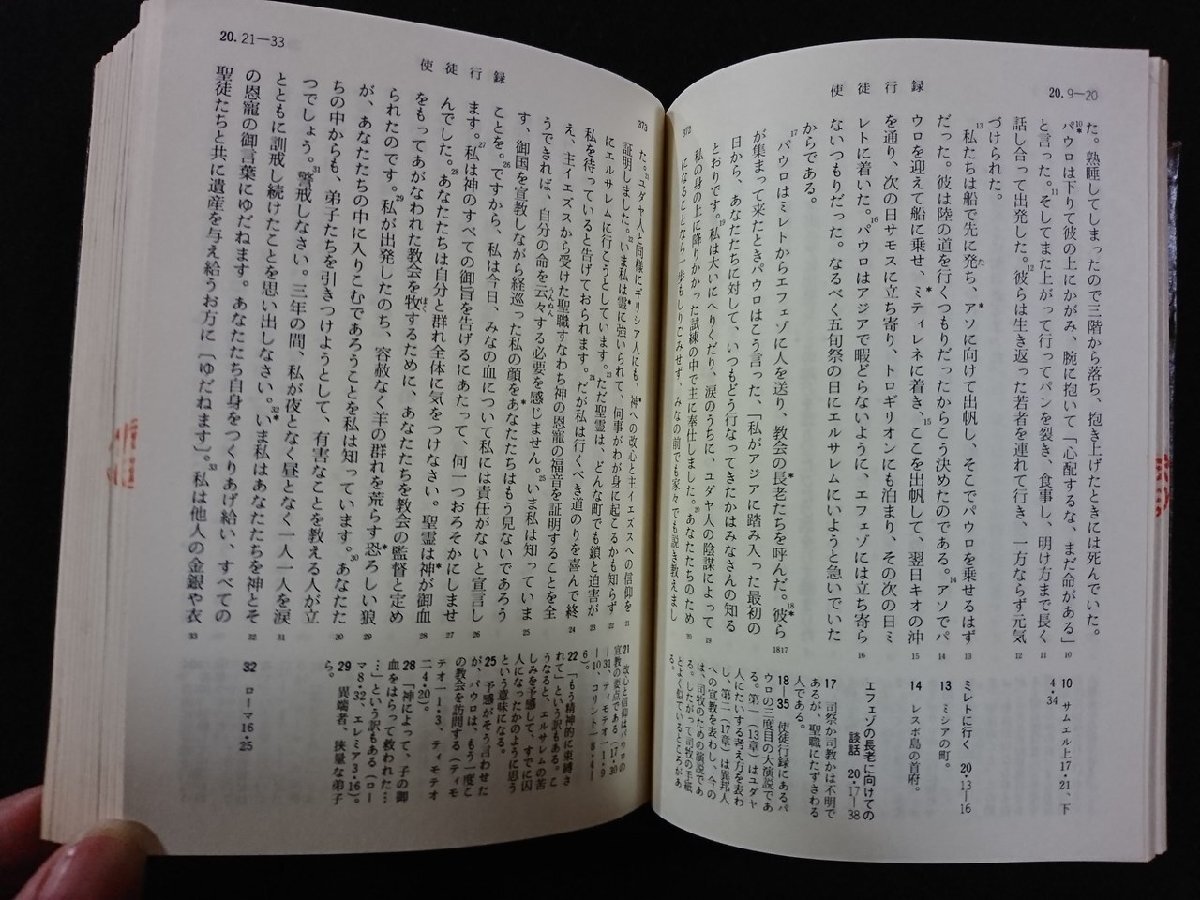 20. 9―20
使徒行録
372
た。熟睡してしまったので三階から落ち、抱き上げたときには死んでいた。
10*パウロは下りて彼の上にかがみ、腕に抱いて「心配するな、まだ命がある」
と言った。11そしてまた上がって行ってパンを裂き、食事し、明け方まで長く
話し合って出発した。12彼らは生き返った若者を連れて行き、一方ならず元気
づけられた。
13私たちは船で先に発ち、アソに向けて出帆し、そこでパウロを乗せるはず
だった。彼は陸の道を行くつもりだったからこう決めたのである。14アソでパ
ウロを迎えて船に乗せ、ミティレネに着き、15ここを出帆して、翌日キオの沖
を通り、次の日サモスに立ち寄り、トロギリオンにも泊まり、その次の日ミ
レトに着いた。16パウロはアジアで暇どらないように、エフェゾには立ち寄ら
ないつもりだった。なるべく五旬祭の日にエルサレムにいようと急いでいた
からである。
17パウロはミレトからエフェゾに人を送り、教会の長老たちを呼んだ。18*彼ら
が集まって来たときパウロはこう言った、「私がアジアに踏み入った最初の
日から、あなたたちに対して、いつもどう行なってきたかはみなさんの知る
とおりです。19私は大いにへりくだり、涙のうちに、ユダヤ人の陰謀によって
私の身の上に降りかかった試練の中で主に奉仕しました。20あなたたちのため
になることなら一歩もしりごみせず、みなの前でも家々でも説き教えまし
10 サムエル上17・21、下
4・34
ミレトに行く 20・13―16
13 ミシアの町。
14 レスボ島の首府。
エフェゾの長老に向けての
談話 20・17―38
17 司祭か司教かは不明で
あるが、聖職にたずさわる
人である。
18―35 使徒行録にあるパ
ウロの三度目の大演説であ
る。第一（13章）はユダヤ
人にたいする考え方を表わ
し、第二（17章）は異邦人
への宣教を表わし、今の
は、司牧のための演説であ
る。したがって司牧の手紙
とよく似ているところがあ
る。
20. 21―33
使徒行録
373
た。21ユダヤ人と同様にギリシア人にも、神*への改心と主イエズスへの信仰を
証明しました。22いま私は霊に強いられて、何事がわが身に起こるかも知らず
にエルサレムに行こうとしています。23ただ聖霊は、どんな町でも鎖と迫害が
私を待っていると告げておられます。24だが私は行くべき道のりを喜んで終
え、主イエズスから受けた聖職すなわち神の恩寵の福音を証明することを全
うできれば、自分の命を云々する必要を感じません。25いま私は知っていま
す、御国を宣教しながら経巡った私の顔をあなたたちはもう見ないであろう
ことを。26ですから、私は今日、みなの血について私には責任がないと宣言し
ます。27私は神のすべての御旨を告げるにあたって、何一つおろそかにしませ
んでした。28あなたたちは自分と群れ全体に気をつけなさい。聖霊は神*が御血
をもってあがなわれた教会を牧するために、あなたたちを教会の監督と定め
られたのです。29私が出発したのち、容赦なく羊の群れを荒らす恐*ろしい狼
が、あなたたちの中に入りこむであろうことを私は知っています。30あなたた
ちの中からも、弟子たちを引きつけようとして、有害なことを教える人が立
つでしょう。31警戒しなさい。三年の間、私が夜となく昼となく一人一人を涙
とともに訓戒し続けたことを思い出しなさい。32*いま私はあなたたちを神とそ
の恩寵の御言葉にゆだねます。あなたたち自身をつくりあげ給い、すべての
聖徒たちと共に遺産を与え給うお方に〔ゆだねます〕。33私は他人の金銀や衣
21 改心と信仰はパウロの
宣教の要点である（17・30
―31、ティモテオ一1・9
―10、コリント一8・4―
6）。
22 「もう精神的に束縛さ
れて」という訳もある。こ
うなると、エルサレムの苦
しみを予感して、すでに囚
人になったかのように思う
という意味になる。
25 予感がそう言わせた
が、パウロは、もう一度こ
の教会を訪問する（ティモ
テオ一1・3、ティモテオ
二4・20）。
28 「神によって、子の御
血をはらって救われた…
…」という訳もある（ロー
マ8・32、エレミア3・16）。
29 異端者、狭量な弟子
ら。
32 ローマ16・25